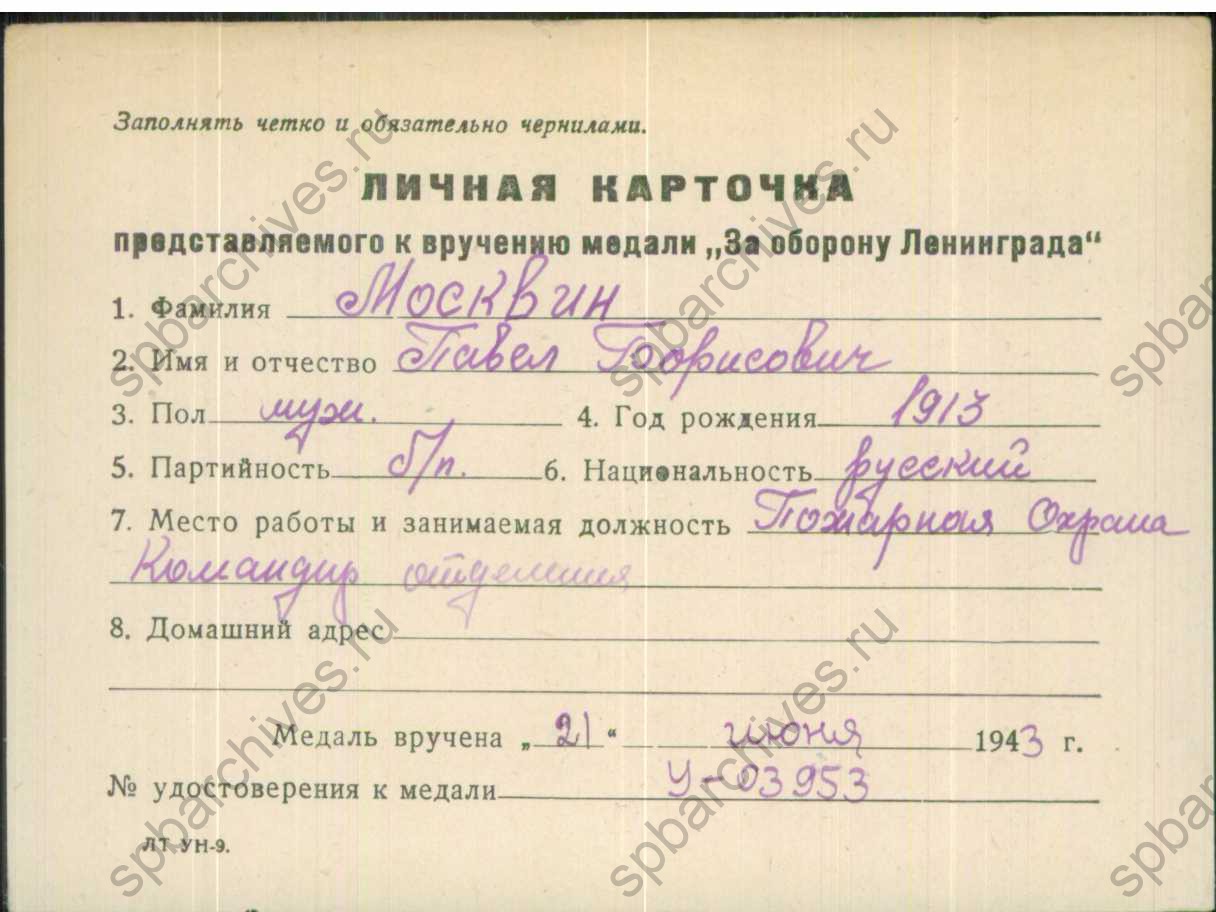 Заполнять четко и обязательно чернилами.
ЛИЧНАЯ КАРТОЧКА
представляемого к вручению медали „За оборону Ленинграда“
1. Фамилия Москвин
2. Имя и отчество Павел Борисович
3. Пол муж. 4. Год рождения 1913
5. Партийность б/п. 6. Национальность русский
7. Место работы и занимаемая должность Пожарная Охрана
Командир отделения
8. Домашний адрес
Медаль вручена „21“ июня 1943 г.
№ удостоверения к медали У-03953
ЛТ УН-9.
spbarchives.ru
spbarchives.ru
spbarchives.ru
spbarchives.ru